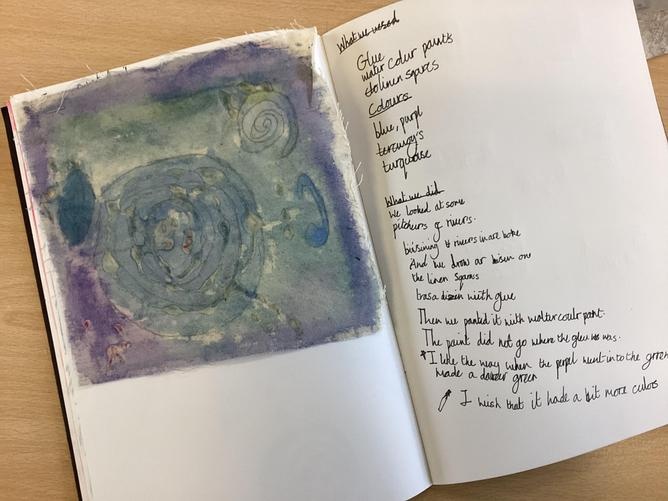 What we used
Glue
water colur paints
linen sqars
Colours
blue, purpl
tercuoys
turquoise
What we did
We looked at some
pitchers of rivers.
& rivers in are boke
And we drow ar on
the linen sqars
with glue
Then we panted it with woltercoulr pant.
The paint did not go where the gleu was.
*I like the way when the perpl went in to the green
made a green
I wish that it hade a bit more culors